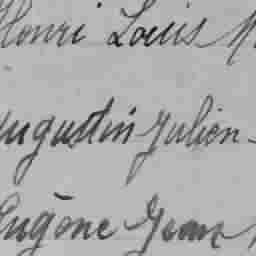 Henri Louis
Augustin Julien
Eugène Jean